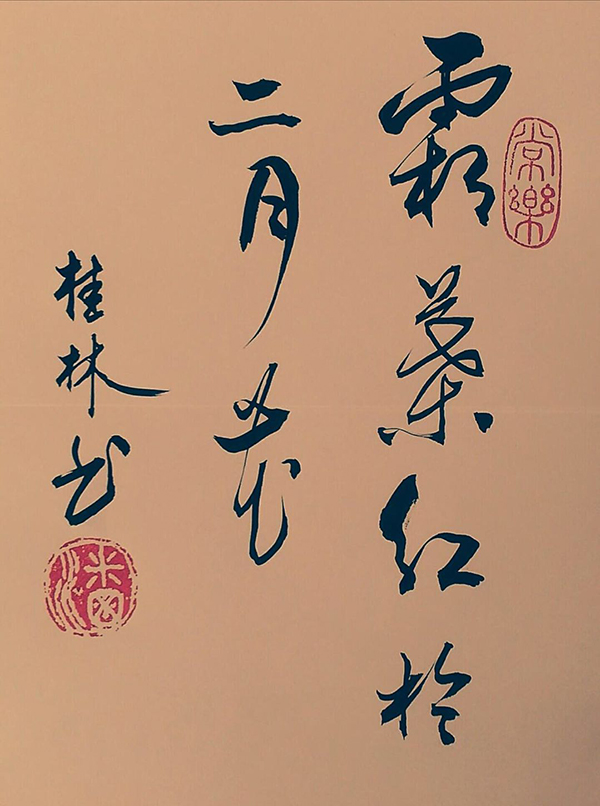 霜葉紅於
二月花
桂林书
常樂
潘